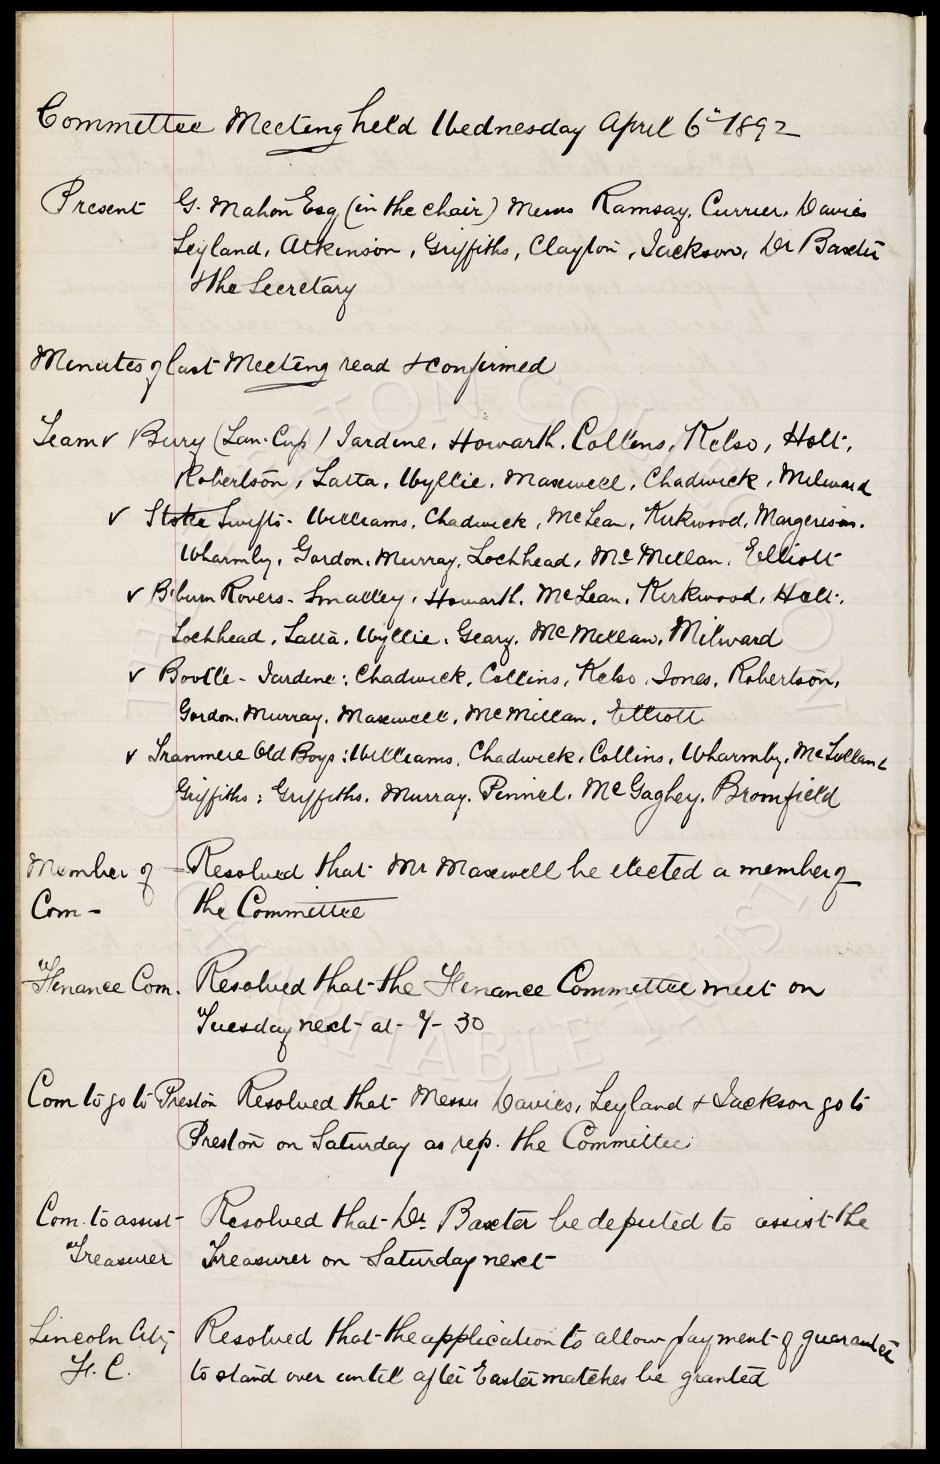 Committee Meeting held Wednesday April 6th 1892
Present G. Mahon Esq (in the chair) Messrs Ramsay, Currier, Davies
Leyland, Atkinson, Griffiths, Clayton, Jackson, Dr Baxter
& the Secretary
Minutes of last Meeting read & confirmed
Team v Bury (Lan. Cup) Jardine, Howarth, Collins, Kelso, Holt,
Robertson, Latta, Wyllie, Maxwell, Chadwick, Milward
v Stoke Swifts - Williams, Chadwick, McLean, Kirkwood, Margerison,
Wharmby, Gordon, Murray, Lochhead, McMillan, Elliott
v B'burn Rovers - Smalley, Howarth, McLean, Kirkwood, Holt,
Lochhead, Latta, Wyllie, Geary, McMillan, Milward
v Bootle - Jardine: Chadwick, Collins, Kelso, Jones, Robertson,
Gordon, Murray, Maxwell, McMillan, Elliott
v Tranmere Old Boys: Williams, Chadwick, Collins, Wharmby,
Griffiths: Griffiths, Murray, Pinnel, McGaghey, Bromfield
Member of Resolved that Mr Maxwell be elected a member of
Com - the Committee
Finance Com. Resolved that the Finance Committee meet on
Tuesday next at 7-30
Com to go to Preston Resolved that Messrs Davies, Leyland & Jackson go to
Preston on Saturday as rep. the Committee
Com. to assist Resolved that Dr. Baxter be deputed to assist the
Treasurer Treasurer on Saturday next
Lincoln City Resolved that the application to allow payment of guarantee
F. C. to stand over until after Easter matches be granted
EVERTON COLLECTION
CHARITABLE TRUST